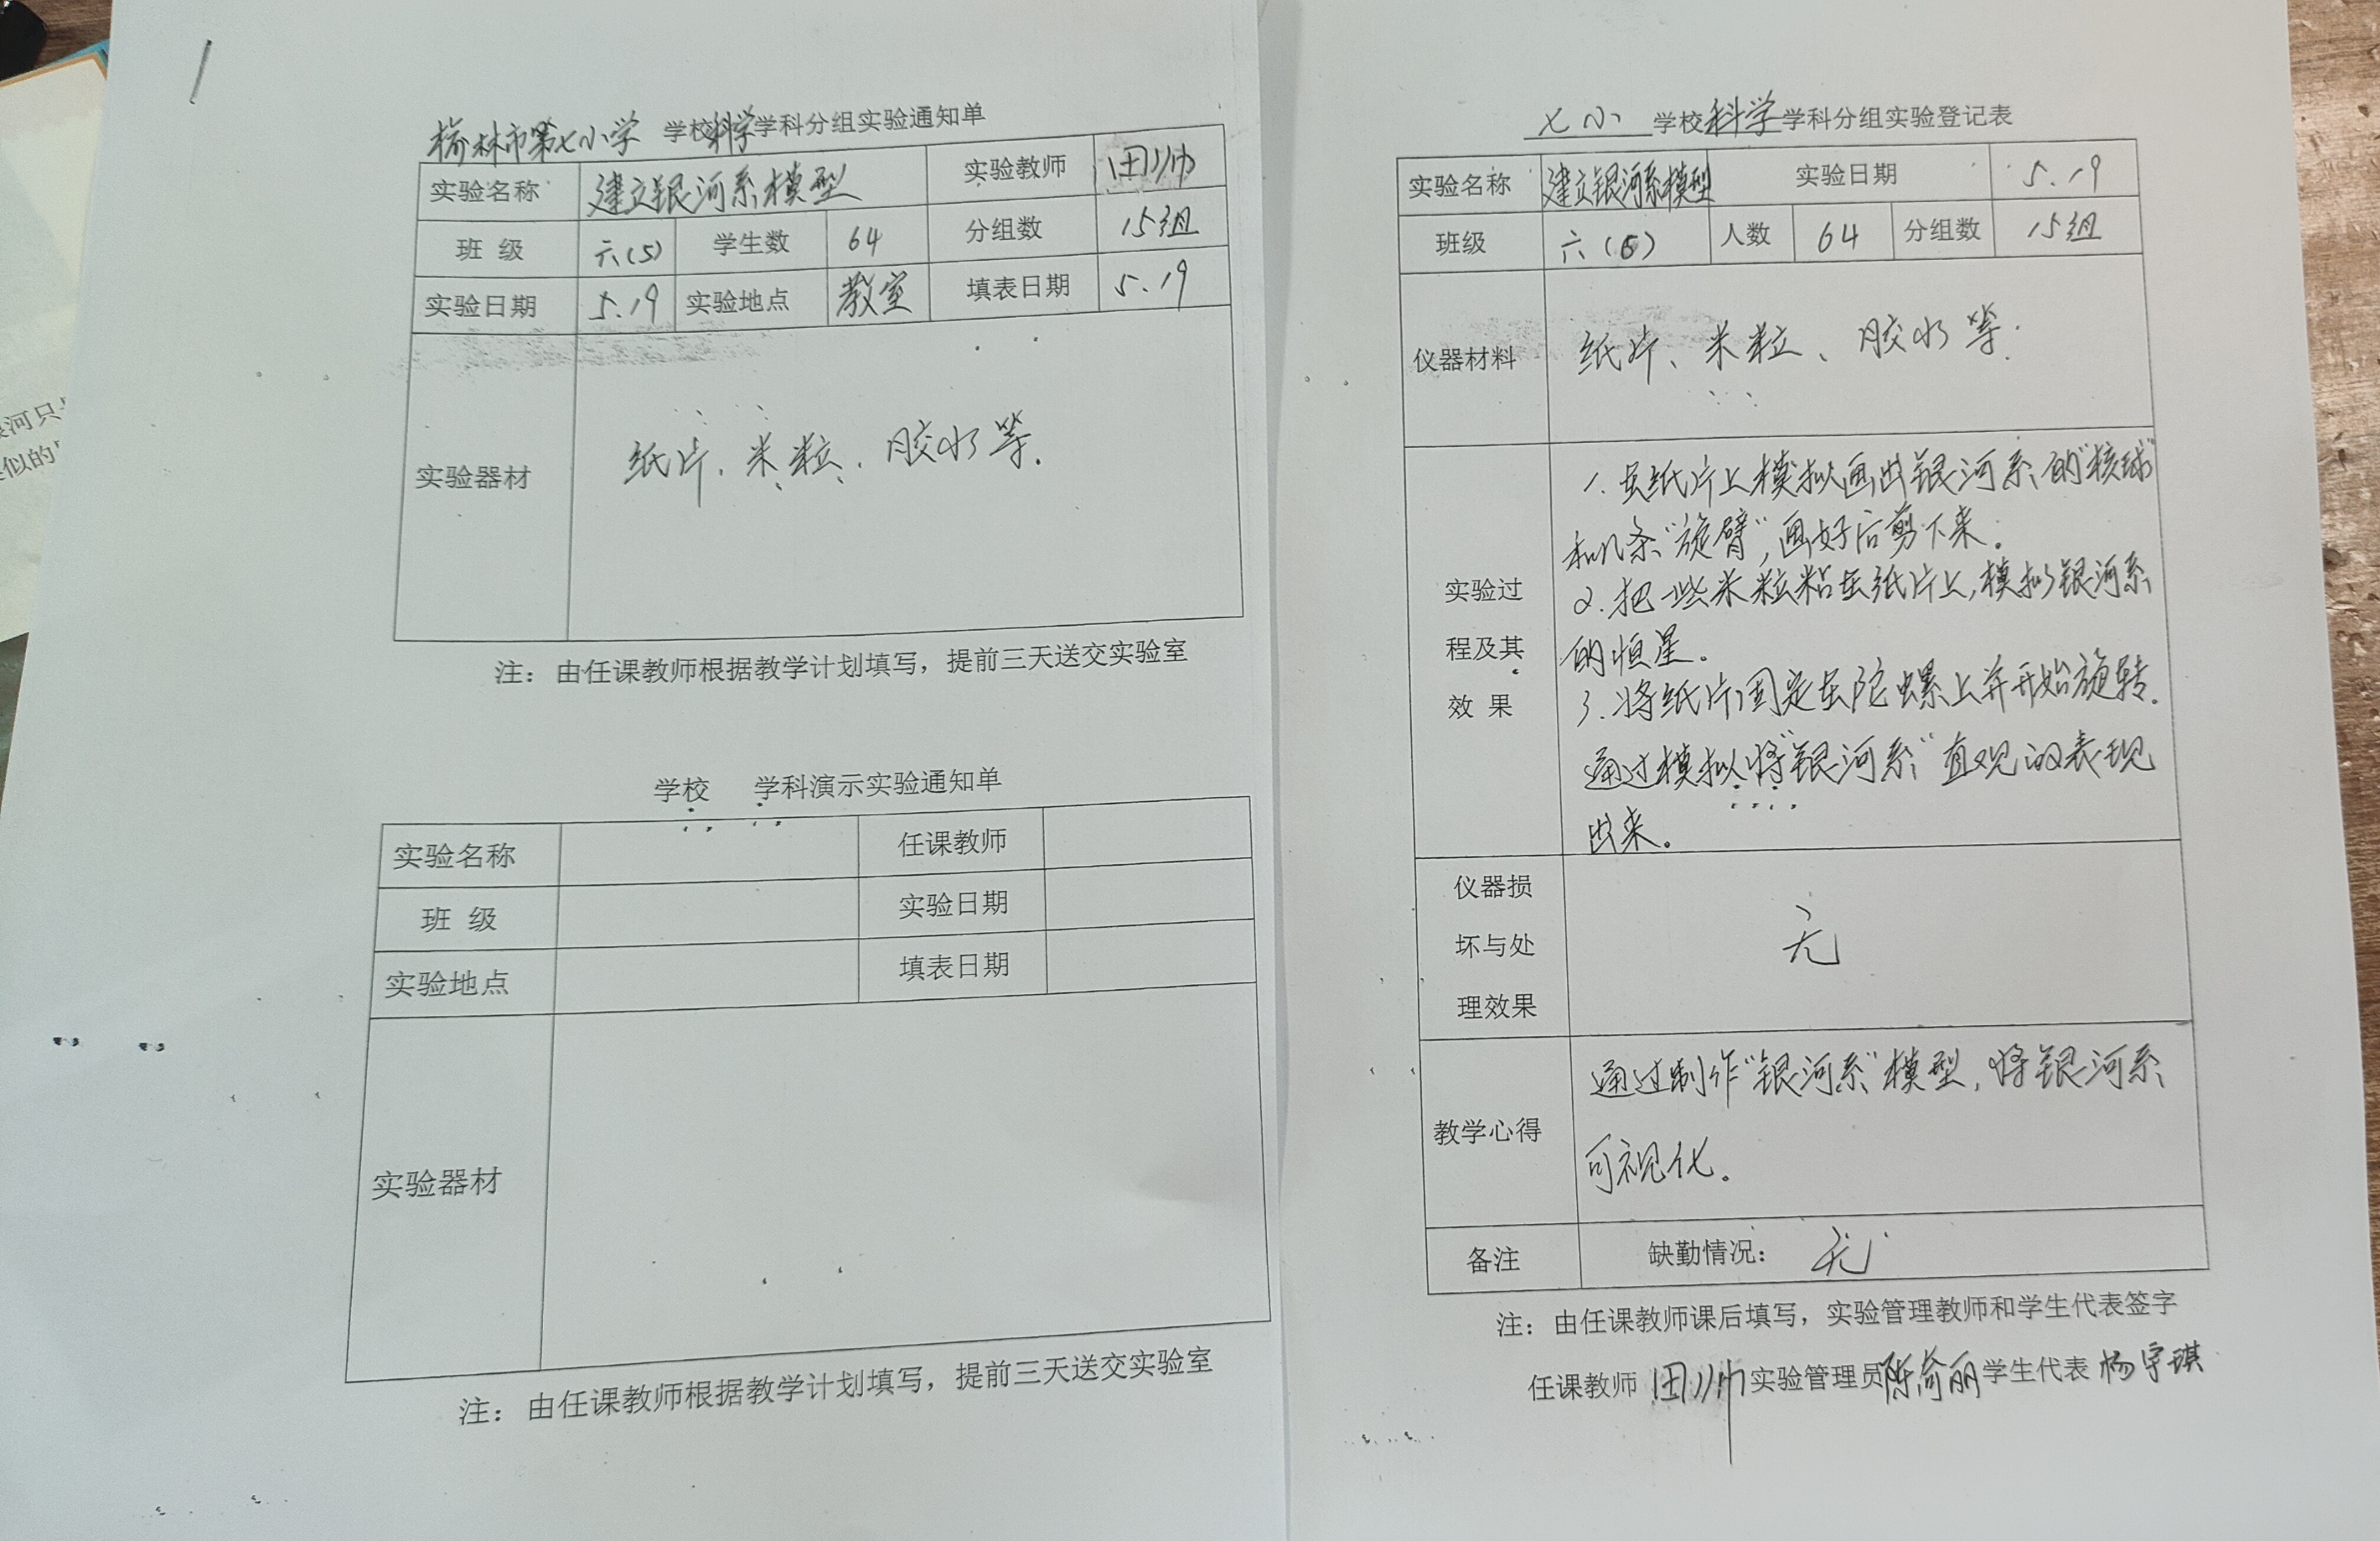 榆林市第七小学 学校科学学科分组实验通知单
实验名称 建立银河系模型 实验教师 田帅
班 级 六(5) 学生数 64 分组数 15组
实验日期 5.19 实验地点 教室 填表日期 5.19
实验器材 纸片、米粒、胶水等.
注：由任课教师根据教学计划填写，提前三天送交实验室
学校 学科演示实验通知单
实验名称 任课教师
班 级 实验日期
实验地点 填表日期
实验器材
注：由任课教师根据教学计划填写，提前三天送交实验室
七小 学校科学学科分组实验登记表
实验名称 建立银河系模型 实验日期 5.19
班级 六(5) 人数 64 分组数 15组
仪器材料 纸片、米粒、胶水等.
实验过
程及其
效 果
1.在纸片上模拟画出银河系的“核球”
和几条“旋臂”,画好后剪下来.
2.把一些米粒粘在纸片上,模拟银河系
的恒星.
3.将纸片固定在陀螺上并开始旋转.
通过模拟将“银河系”直观的表现
出来。
仪器损
坏与处
理效果
无
教学心得
通过制作“银河系”模型,将银河系
可视化。
备注 缺勤情况： 无
注：由任课教师课后填写，实验管理教师和学生代表签字
任课教师 田帅 实验管理员 陈 丽 学生代表 杨宇琪
河只
似的